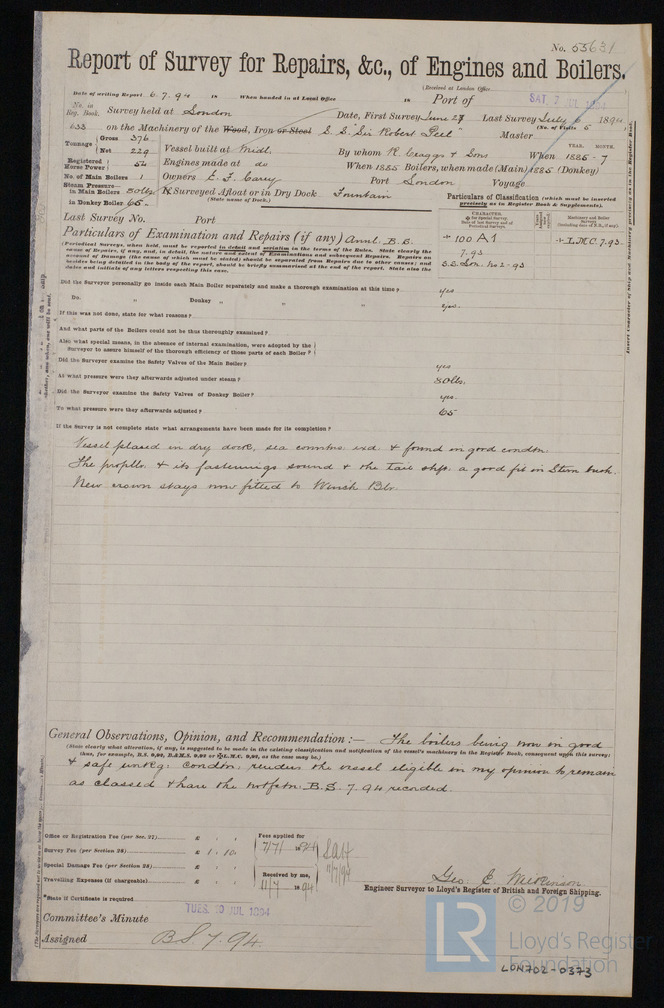 No. 53631
Report of Survey for Repairs, &c., of Engines and Boilers.
(Received at London Office
Date of writing Report 6.7.94 18 When handed in at Local Office 18 Port of SAT. 7 JUL 1894
No. in Reg. Book. Survey held at London Date, First Survey June 27 Last Survey July 6 1894
633 on the Machinery of the Wood, Iron or Steel S.S. "Sir Robert Peel" Master (No. of Visits 5)
Tonnage Gross 376 Net 229 Vessel built at Midl. By whom R. Craggs & Sons When YEAR. MONTH. 1885 - 7
Registered Horse Power 54 Engines made at do When 1885 Boilers, when made (Main) 1885 (Donkey)
No. of Main Boilers 1 Owners E. F. Carey Port London Voyage
Steam Pressure in Main Boilers 80 lbs. If Surveyed Afloat or in Dry Dock Fountain
in Donkey Boiler 65 (State name of Dock.)
Particulars of Classification (which must be inserted precisely as in Register Book & Supplements).
Last Survey No. Port
CHARACTER.
+ 100 A1
7.93
S.S. Lon. No 2 - 93
Machinery and Boiler Surveys
+ L.M.C. 7.93
Particulars of Examination and Repairs (if any) Annl. B.S.
(Periodical Surveys, when held, must be reported in detail and seriatim in the terms of the Rules. State clearly the
cause of Repairs, if any, and, in detail, the nature and extent of Examinations and subsequent Repairs. Repairs on
account of Damage (the cause of which must be stated) should be separated from Repairs due to other causes; and
besides being detailed in the body of the report, should be briefly summarised at the end of the report. State also the
dates and initials of any letters respecting this case.)
Did the Surveyor personally go inside each Main Boiler separately and make a thorough examination at this time? yes
Do. " Donkey " " " yes.
If this was not done, state for what reasons?
And what parts of the Boilers could not be thus thoroughly examined?
Also what special means, in the absence of internal examination, were adopted by the
Surveyor to assure himself of the thorough efficiency of those parts of each Boiler?
Did the Surveyor examine the Safety Valves of the Main Boiler? yes
At what pressure were they afterwards adjusted under steam? 80 lbs.
Did the Surveyor examine the Safety Valves of Donkey Boiler? yes.
To what pressure were they afterwards adjusted? 65
If the Survey is not complete state what arrangements have been made for its completion?
Vessel placed in dry dock, sea conntns. exd. & found in good condtn.
The propllr. & its fastenings sound & the tail shft. a good fit in Stern bush.
New crown stays now fitted to Winch Blr.
General Observations, Opinion, and Recommendation :— The boilers being now in good
(State clearly what alteration, if any, is suggested to be made in the existing classification and notification of the vessel's machinery in the Register Book, consequent upon this survey;
thus, for example, B.S. 9,92, B.&M.S. 9,92 or L.M.C. 9,92, as the case may be.)
& safe workg. condtn. renders the vessel eligible in my opinion to remain
as classed & have the notfctn. B.S. 7.94 recorded.
Office or Registration Fee (per Sec. 27) £
Survey Fee (per Section 28) £ 1 . 10
Special Damage Fee (per Section 28) £
Travelling Expenses (if chargeable) £
Fees applied for
7/7/ 1894
Received by me,
11/7 1894
*State if Certificate is required
Geo. E. Wilkinson
Engineer Surveyor to Lloyd's Register of British and Foreign Shipping.
TUES. 10 JUL 1894
Committee's Minute
Assigned B.S. 7.94
© 2019
LR
Lloyd's Register
Foundation
LON702-0373